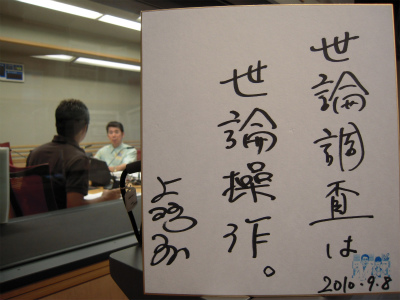 世論調査は
世論操作。
2010.9.8